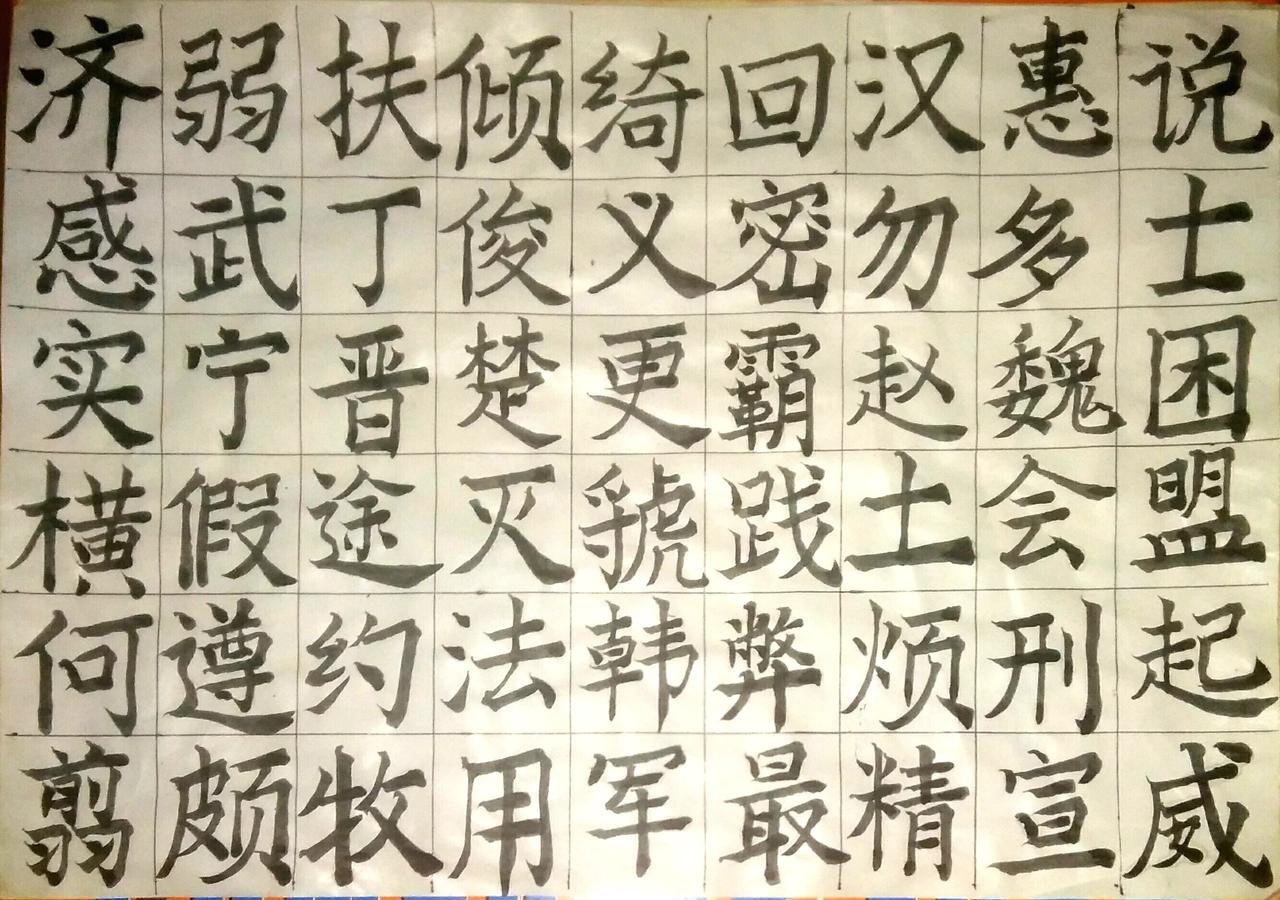 济弱扶倾绮回汉惠说
感武丁俊义密勿多士
实宁晋楚更霸赵魏困
横假途灭虢践土会盟
何遵约法韩弊烦刑起
翦颇牧用军最精宣威